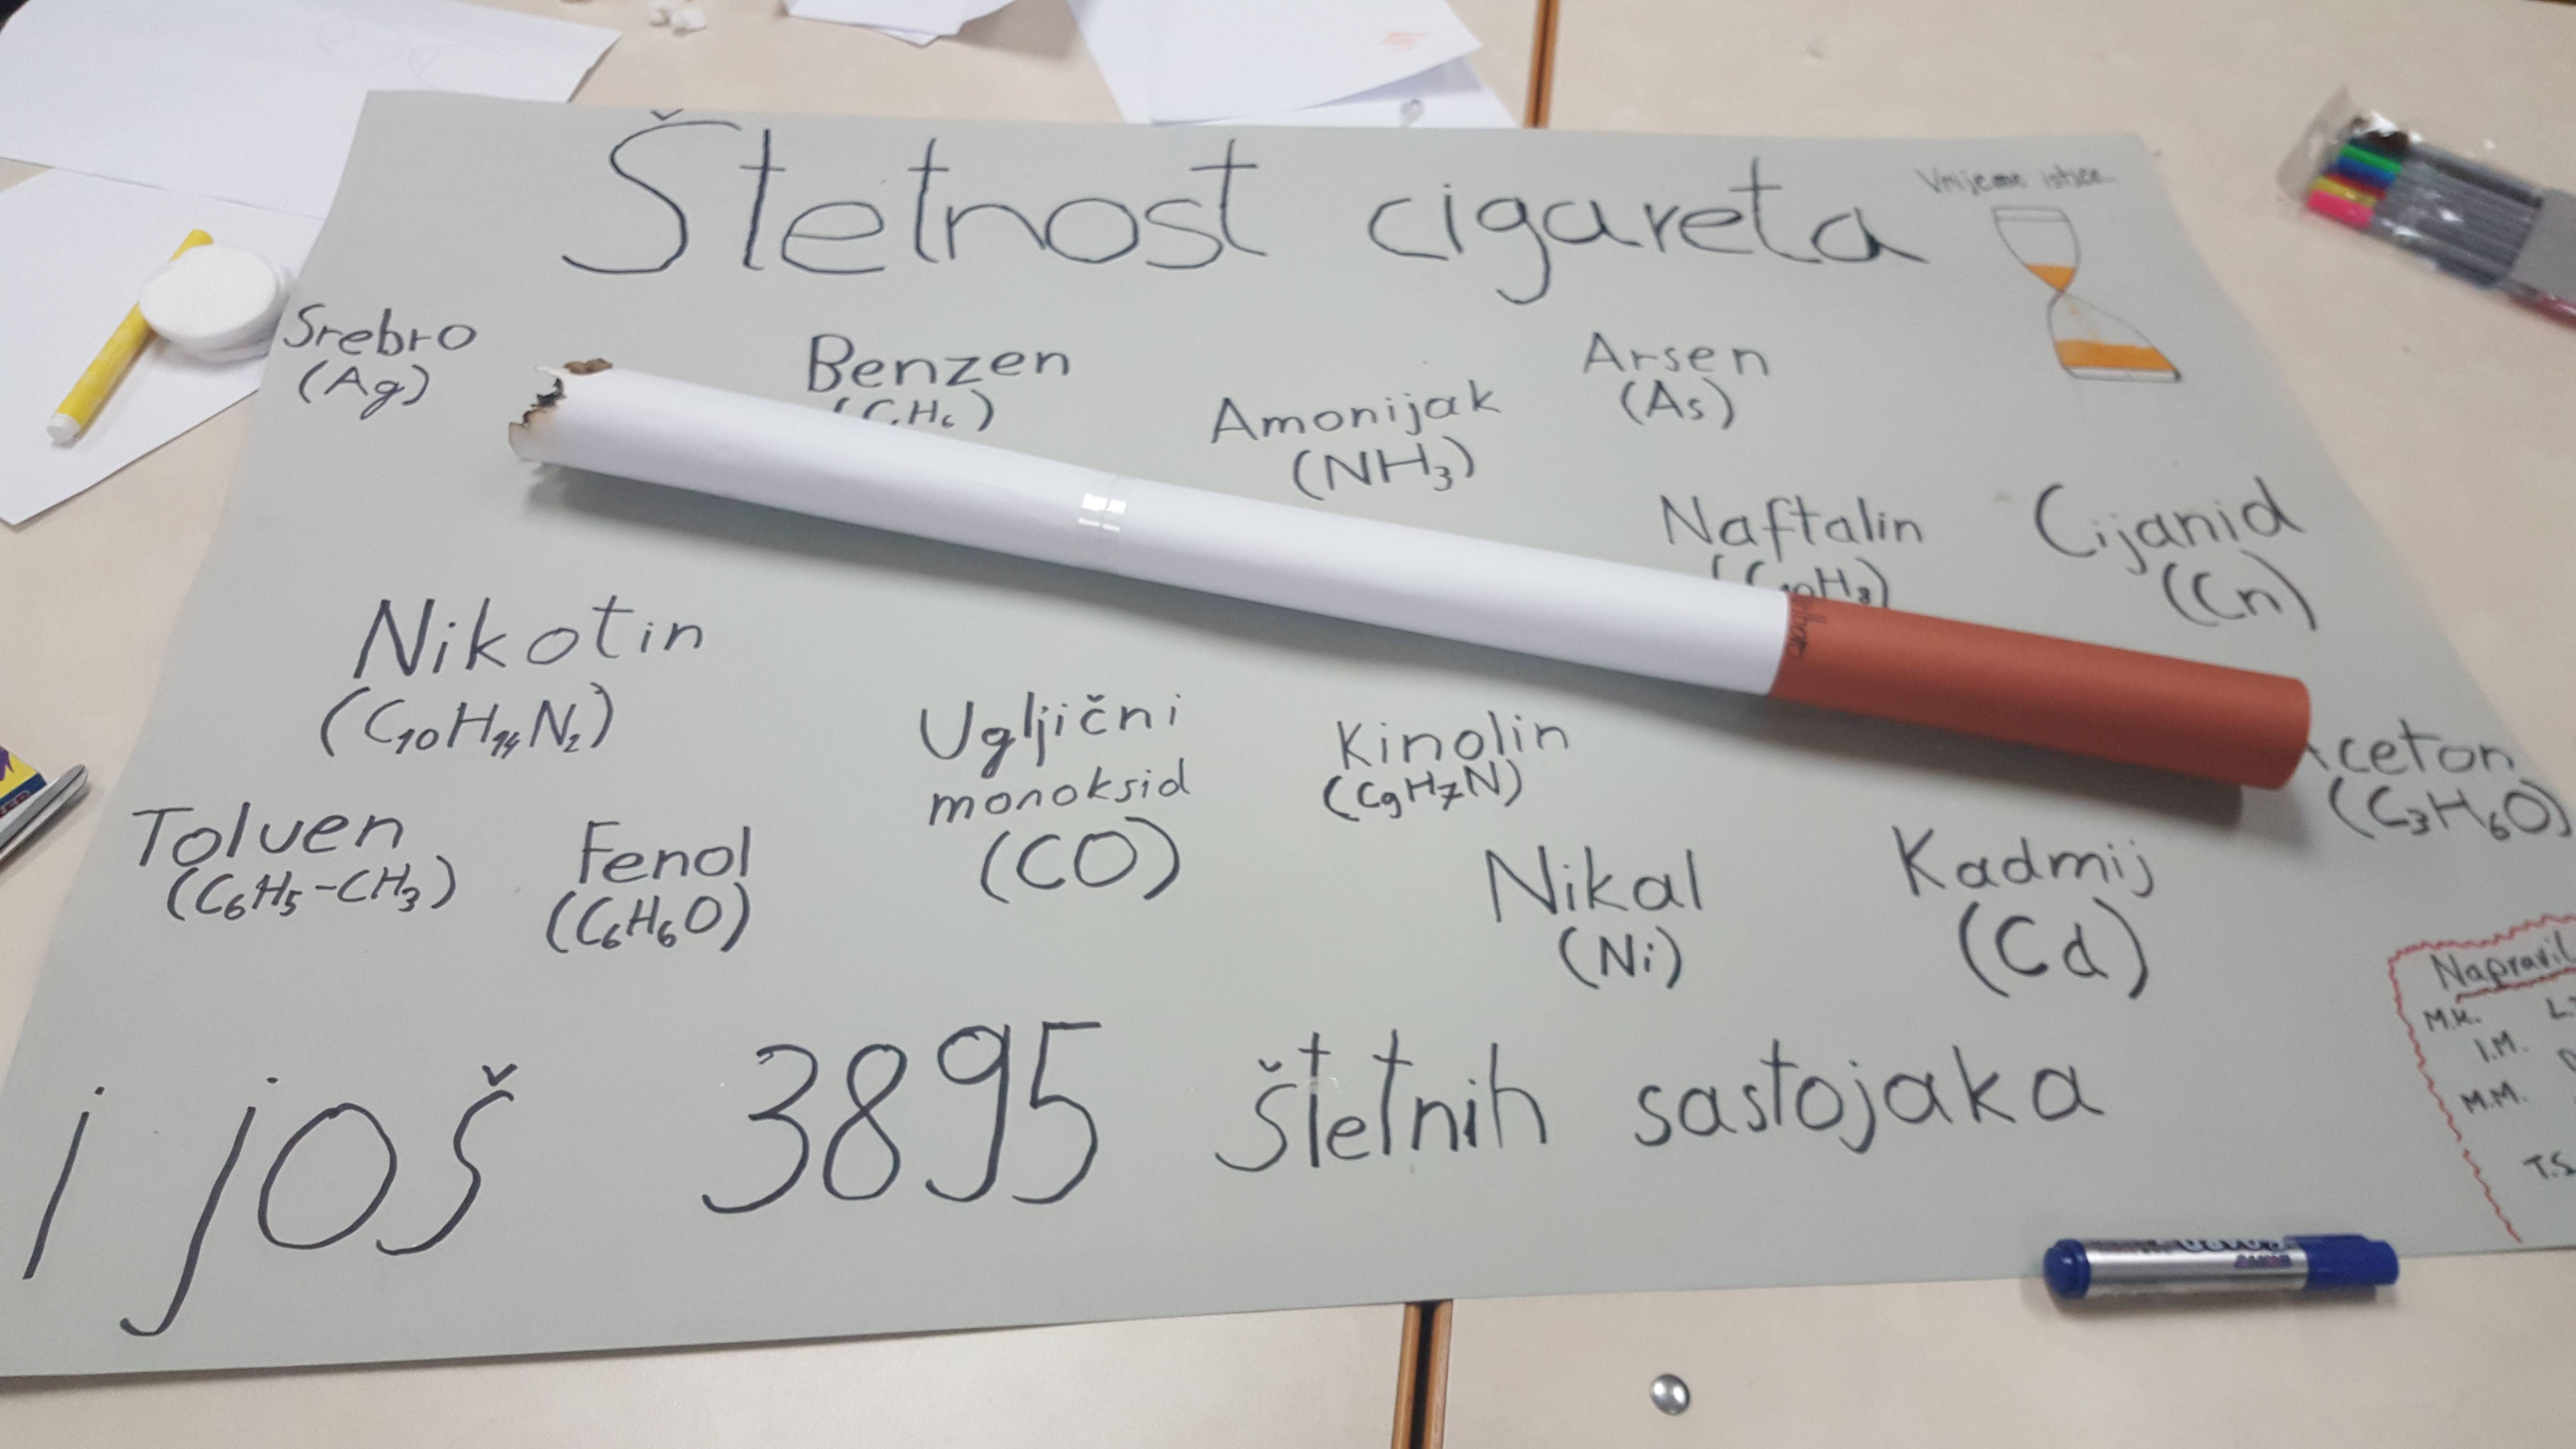 Štetnost cigareta
Vrijeme istječe...
Srebro
(Ag)
Benzen
Amonijak
(NH3)
Arsen
(As)
Naftalin
Cijanid
(Cn)
Nikotin
(C10H14N2)
Ugljični
monoksid
(CO)
Kinolin
(C9H7N)
(C3H6O)
Toluen
(C6H5-CH3)
Fenol
(C6H6O)
Nikal
(Ni)
Kadmij
(Cd)
i još 3895 štetnih sastojaka
M.K.
I.M.
M.M.
T.S.